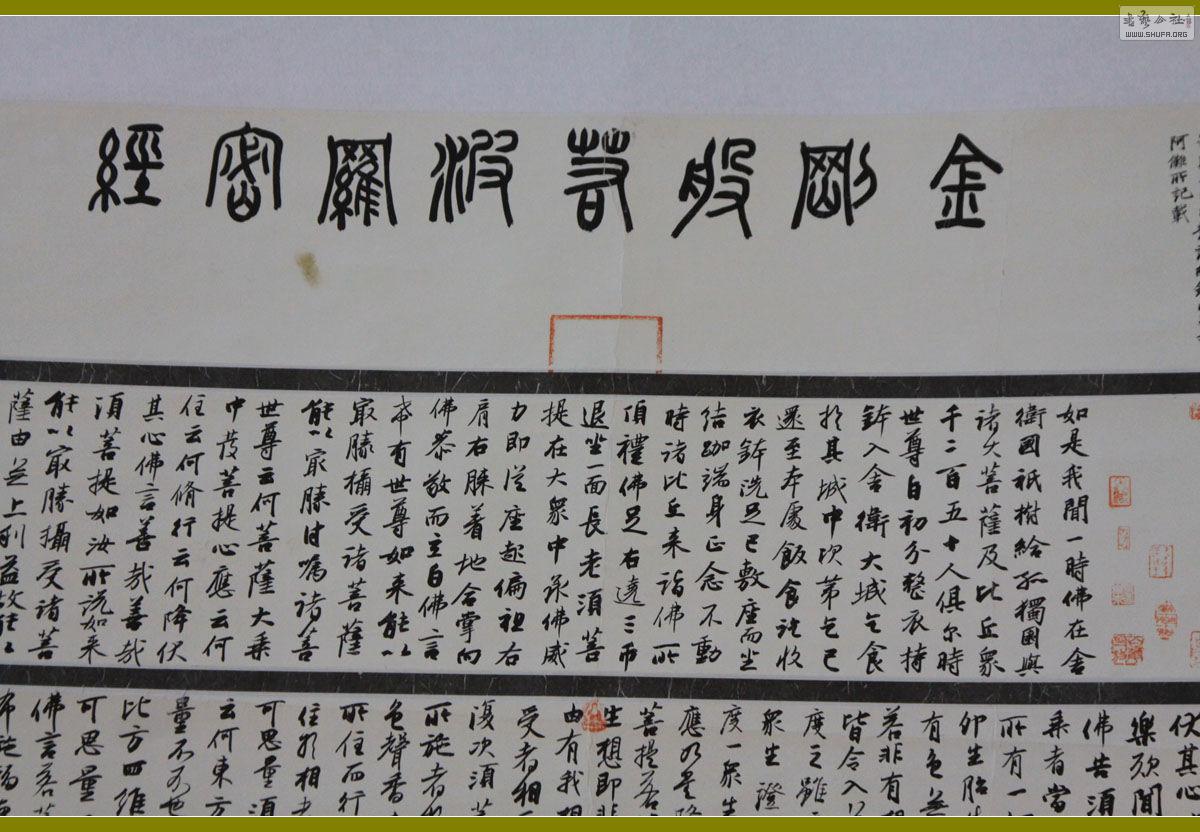 金剛般若波羅密經
阿儺所記載
如是我聞一時佛在舍
衛國祇樹給孤獨園與
諸大菩薩及比丘眾
千二百五十人俱尒時
世尊自初分整衣持
鉢入舍衛大城乞食
於其城中次第乞已
還至本處飯食訖收
衣鉢洗足已敷座而坐
結跏端身正念不動
時諸比丘来詣佛所
頂禮佛足右遶三帀
退坐一面長老須菩
提在大眾中承佛威
力即從座起偏袒右
肩右膝着地合掌向
佛恭敬而立白佛言
希有世尊如来能以
最勝攝受諸菩薩
能以最勝付囑諸菩
世尊云何菩薩大乘
中發菩提心應云何
住云何脩行云何降伏
其心佛言善哉善哉
須菩提如汝所說如来
能以最勝攝受諸菩
薩由無上利益故能以
伏其心
樂欲聞
佛告須
乘者當
所有一
卵生胎
有色無
若非有
皆令入
度之雖
眾生證
度一眾生
菩提若
生想即非
由有我想
受者相
復次須菩
所施者
色聲香
所住而行
住於相
可思量須
云何東方
量不可也
比方四維
可思量
佛言若菩
布施福
書藝公社
WWW.SHUFA.ORG